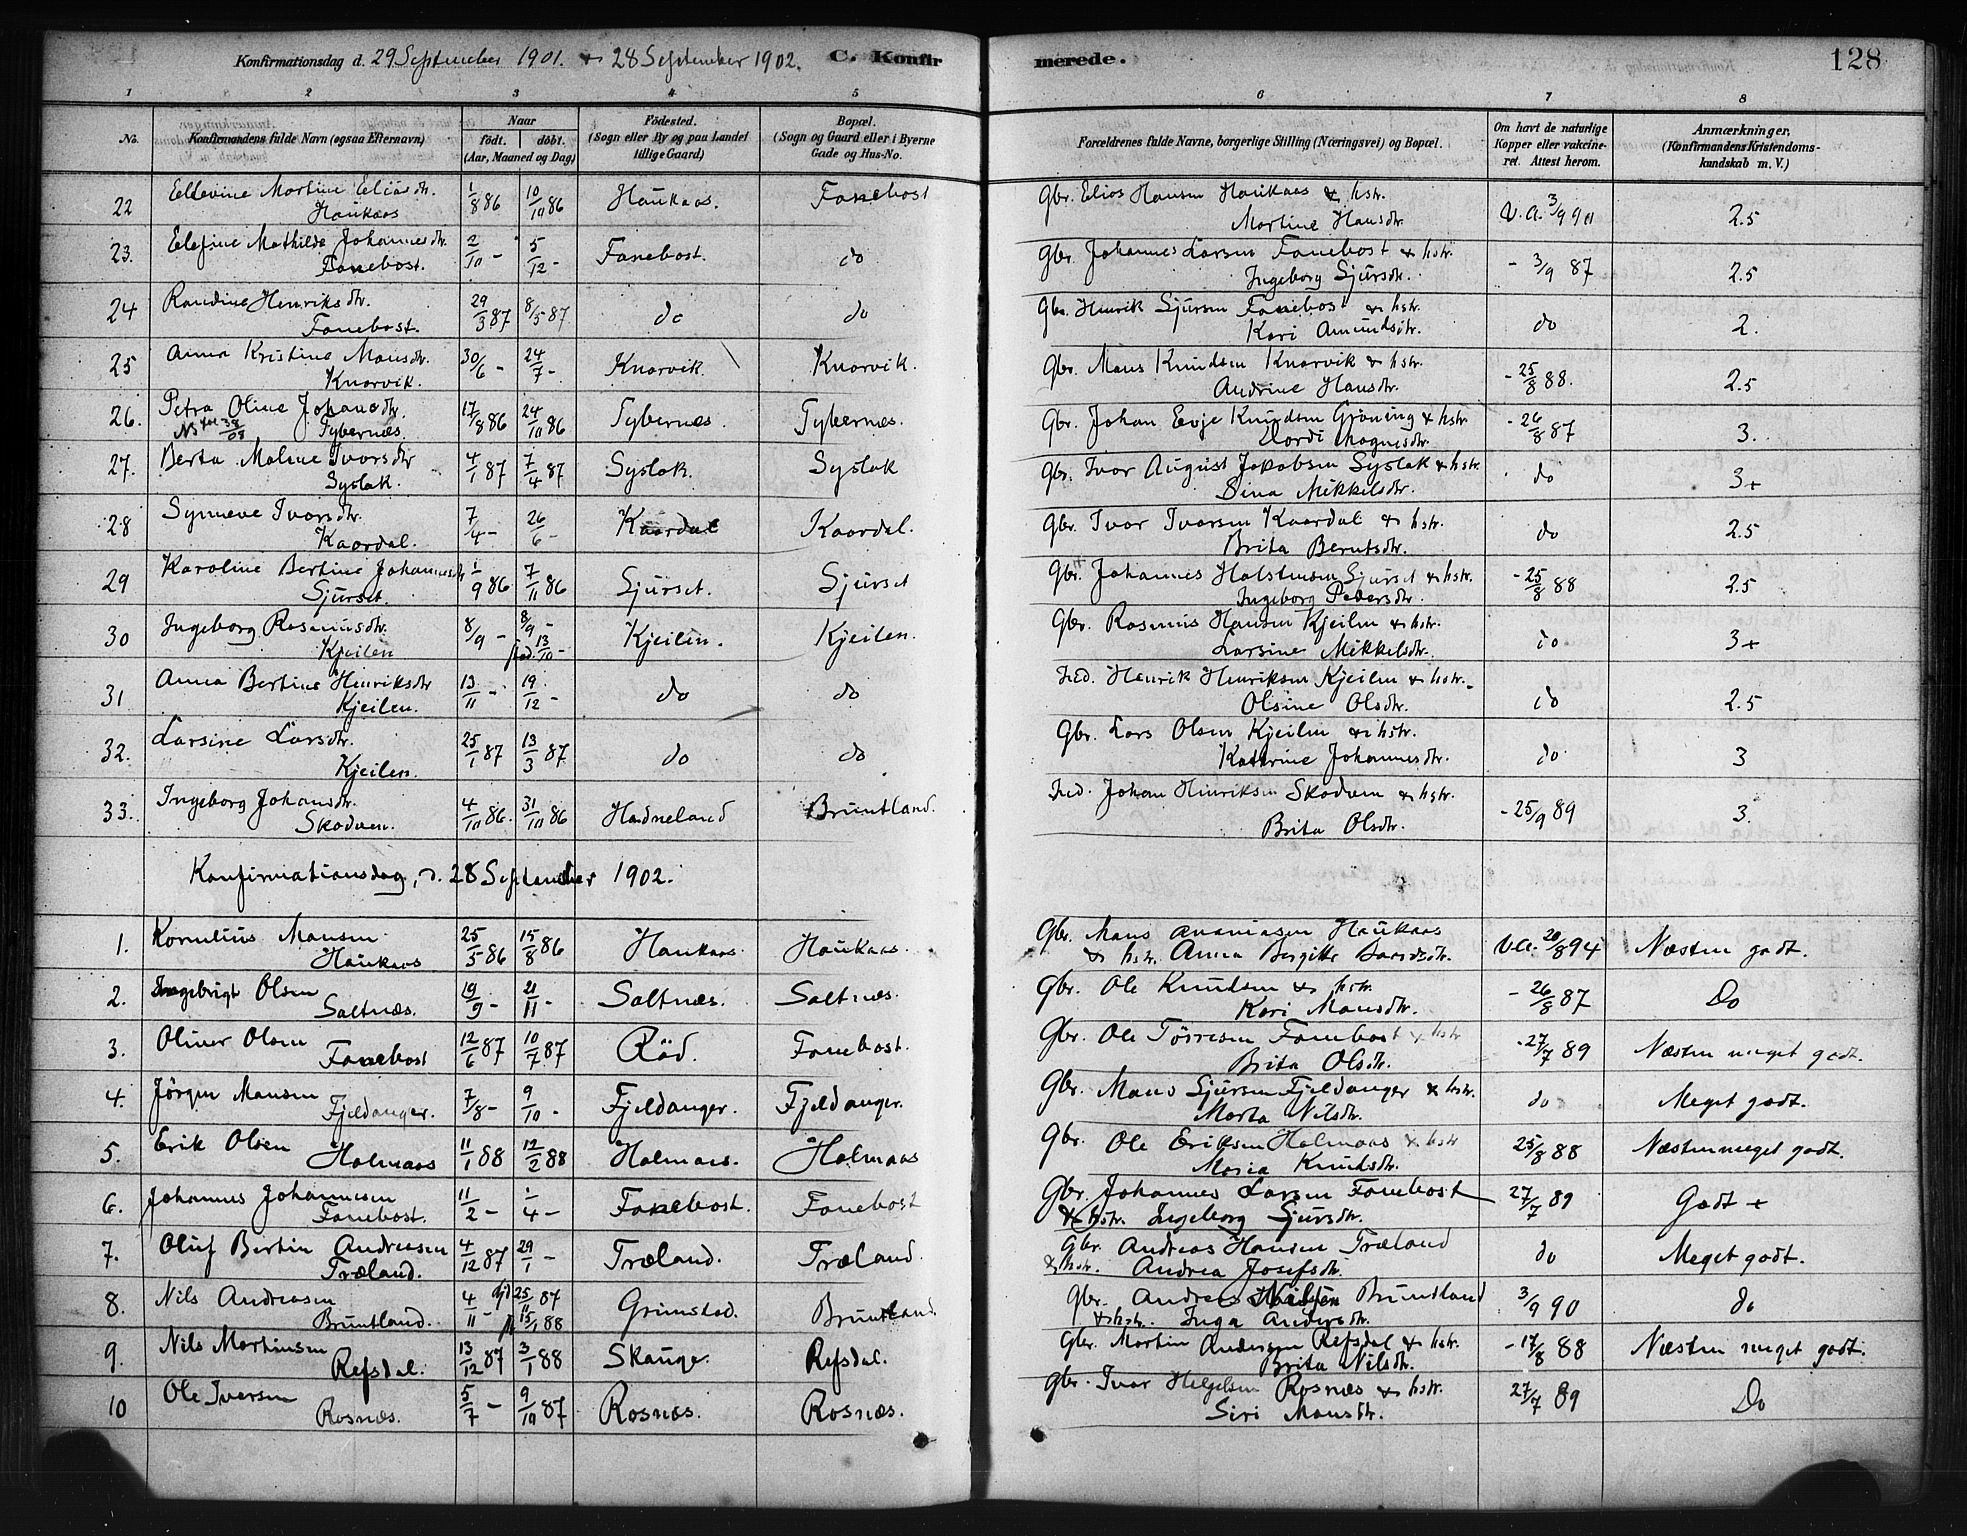 Konfirmationsdag d. 29 September 1901. & 28 September 1902. C. Konfirmerede. 128
1 2 3 4 5 6 7 8
No. Konfirmandens fulde Navn (ogsaa Efternavn) Naar født. døbt. (Aar, Maaned og Dag) Fødested. (Sogn eller By og paa Landet tillige Gaard) Bopæl. (Sogn og Gaard eller i Byerne Gade og Hus-No. Forældrenes fulde Navne, borgerlige Stilling (Næringsvei) og Bopæl. Om havt de naturlige Kopper eller vakcineret. Attest herom. Anmærkninger, (Konfirmandens Kristendomskundskab m. V.)
22 Ellevine Martine Eliasdtr. 1/8 86 10/10 86 Haukaas. Fanebost Gbr. Elias Hansen Haukaas & hstr. V.a. 3/9 90 2.5
Haukaas Martine Hansdtr.
23. Elefine Mathilde Johannesdtr. 2/10 - 5/12 - Fanebost. do Gbr. Johannes Larsen Fanebost & hstr. - 3/9 87 2.5
Fanebost. Ingeborg Sjursdtr.
24 Randine Henriksdtr. 29/3 87 8/5 87 do do Gbr. Henrik Sjursen Fanebost & hstr. do 2.
Fanebost. Kari Amundsdtr.
25 Anna Kristine Mansdtr. 30/6 - 24/7 - Knarvik. Knarvik. Gbr. Mans Knudsen Knarvik & hstr. - 25/8 88. 2.5
Knarvik. Andrine Hansdtr.
26. Petra Oline Johansdtr. 17/8 86 24/10 86 Tybernæs. Tybernæs. Gbr. Johan Evje Knudsen Grøning & hstr. - 26/8 87 3.
Tybernæs. Dordi Magnesdtr.
27. Berta Maline Ivarsdtr 4/1 87 7/4 87 Syslak. Syslak Gbr. Ivar August Jakobsen Syslak & hstr. do 3+
Syslak. Sina Mikkelsdtr.
28 Synneve Ivarsdtr. 7/4 - 26/6 - Kaardal Kaardal. Gbr. Ivar Ivarsen Kaardal & hstr. do 2.5
Kaardal. Brita Berntsdtr.
29 Karoline Bertine Johannesdtr 1/9 86 7/11 86 Sjurset. Sjurset Gbr. Johannes Halstensen Sjurset & hstr. - 25/8 88 2.5
Sjurset. Ingeborg Pedersdtr.
30 Ingeborg Rasmusdtr. 8/9 - 8/9 - Kjeilen. Kjeilen. Gbr. Rasmus Hansen Kjeilen & hstr. do 3+
Kjeilen 13/10 - Larsine Mikkelsdtr.
31 Anna Bertine Henriksdtr 13/11 - 19/12 - do do Ind. Henrik Henriksen Kjeilen & hstr. do 2.5
Kjeilen. Olsine Olsdtr.
32. Larsine Larsdtr. 25/1 87 13/3 87 do do Gbr. Lars Olsen Kjeilen & hstr. do 3
Kjeilen. Katrine Johannesdtr.
33. Ingeborg Johansdtr. 4/10 86. 31/10 86 Hadneland Bruntland. Ind. Johan Henriksen Skodven & hstr. - 25/9 89 3.
Skodven. Brita Olsdtr.
Konfirmationsdag, d. 28 September 1902.
1. Kornelius Mansen 25/5 86 15/8 86 Haukaas Haukaas. Gbr. Mans Ananiasen Haukaas V.a. 20/8 94 Næsten godt.
Haukaas & hstr. Anna Birgitte Baardsdtr.
2. Ingebrigt Olsen 19/9 - 21/11 - Saltnæs. Saltnæs. Gbr. Ole Knudsen & hstr. - 26/8 87 Do
Saltnæs. Kari Mansdtr.
3. Oliver Olsen 12/6 87 10/7 87 Rød. Fanebost. Gbr. Ole Tørresen Fanebost & hstr - 27/7 89 Næsten meget godt.
Fanebost Brita Olsdtr.
4. Jørgen Mansen 7/8 - 9/10 - Fjeldanger. Fjeldanger. Gbr. Mans Sjursen Fjeldanger & hstr. do Meget godt.
Fjeldanger. Marta Nilsdtr.
5. Erik Olsen 11/1 88 12/2 88 Halmaas. Halmaas Gbr. Ole Eriksen Halmaas & hstr 25/8 88 Næsten meget godt.
Halmaas Maria Knutsdtr.
6. Johannes Johannesen 11/2 - 1/4 - Fanebost. Fanebost Gbr. Johannes Larsen Fanebost 27/7 89 Godt +
Fanebost. & hstr. Ingeborg Sjursdtr.
7. Oluf Bertin Andreasen 4/12 87 29/1 - Træland. Træland. Gbr. Andreas Hansen Træland do Meget godt.
Træland. & hstr. Andrea Josefsdtr.
8. Nils Andreasen 4/11 - 25/11 87 Grimstad. Bruntland. Gbr. Andreas Nilsen Bruntland 3/9 90 do
Bruntland. 15/1 88 & hstr. Inga Andersdtr.
9. Nils Martinsen 13/12 87 3/1 88 Skauge. Refsdal. Gbr. Martin Andersen Refsdal & hstr. - 17/8 88 Næsten meget godt.
Refsdal. Brita Nilsdtr.
10 Ole Iversen 5/7 - 9/10 87 Rosnæs. Rosnæs. Gbr. Ivar Helgesen Rosnæs & hstr. 27/7 89 Do
Rosnæs. Siri Mansdtr.